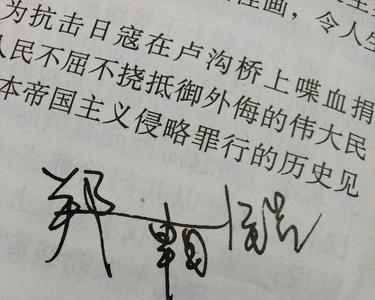 怪画，令人
为抗击日寇在卢沟桥上喋血捐
人民不屈不挠抵御外侮的伟大民
本帝国主义侵略罪行的历史见
郑